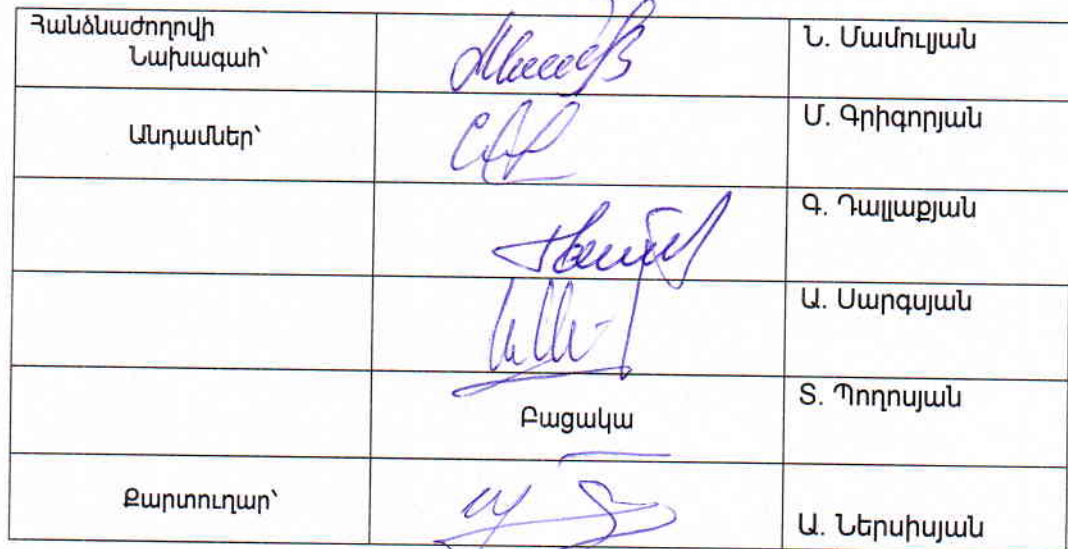 Հանձնաժողովի
Նախագահ՝
Ն. Մամուլյան
Անդամներ՝
Մ. Գրիգորյան
Գ. Դալլաքյան
Ա. Սարգսյան
Բացակա
Տ. Պողոսյան
Քարտուղար՝
Ա. Ներսիսյան